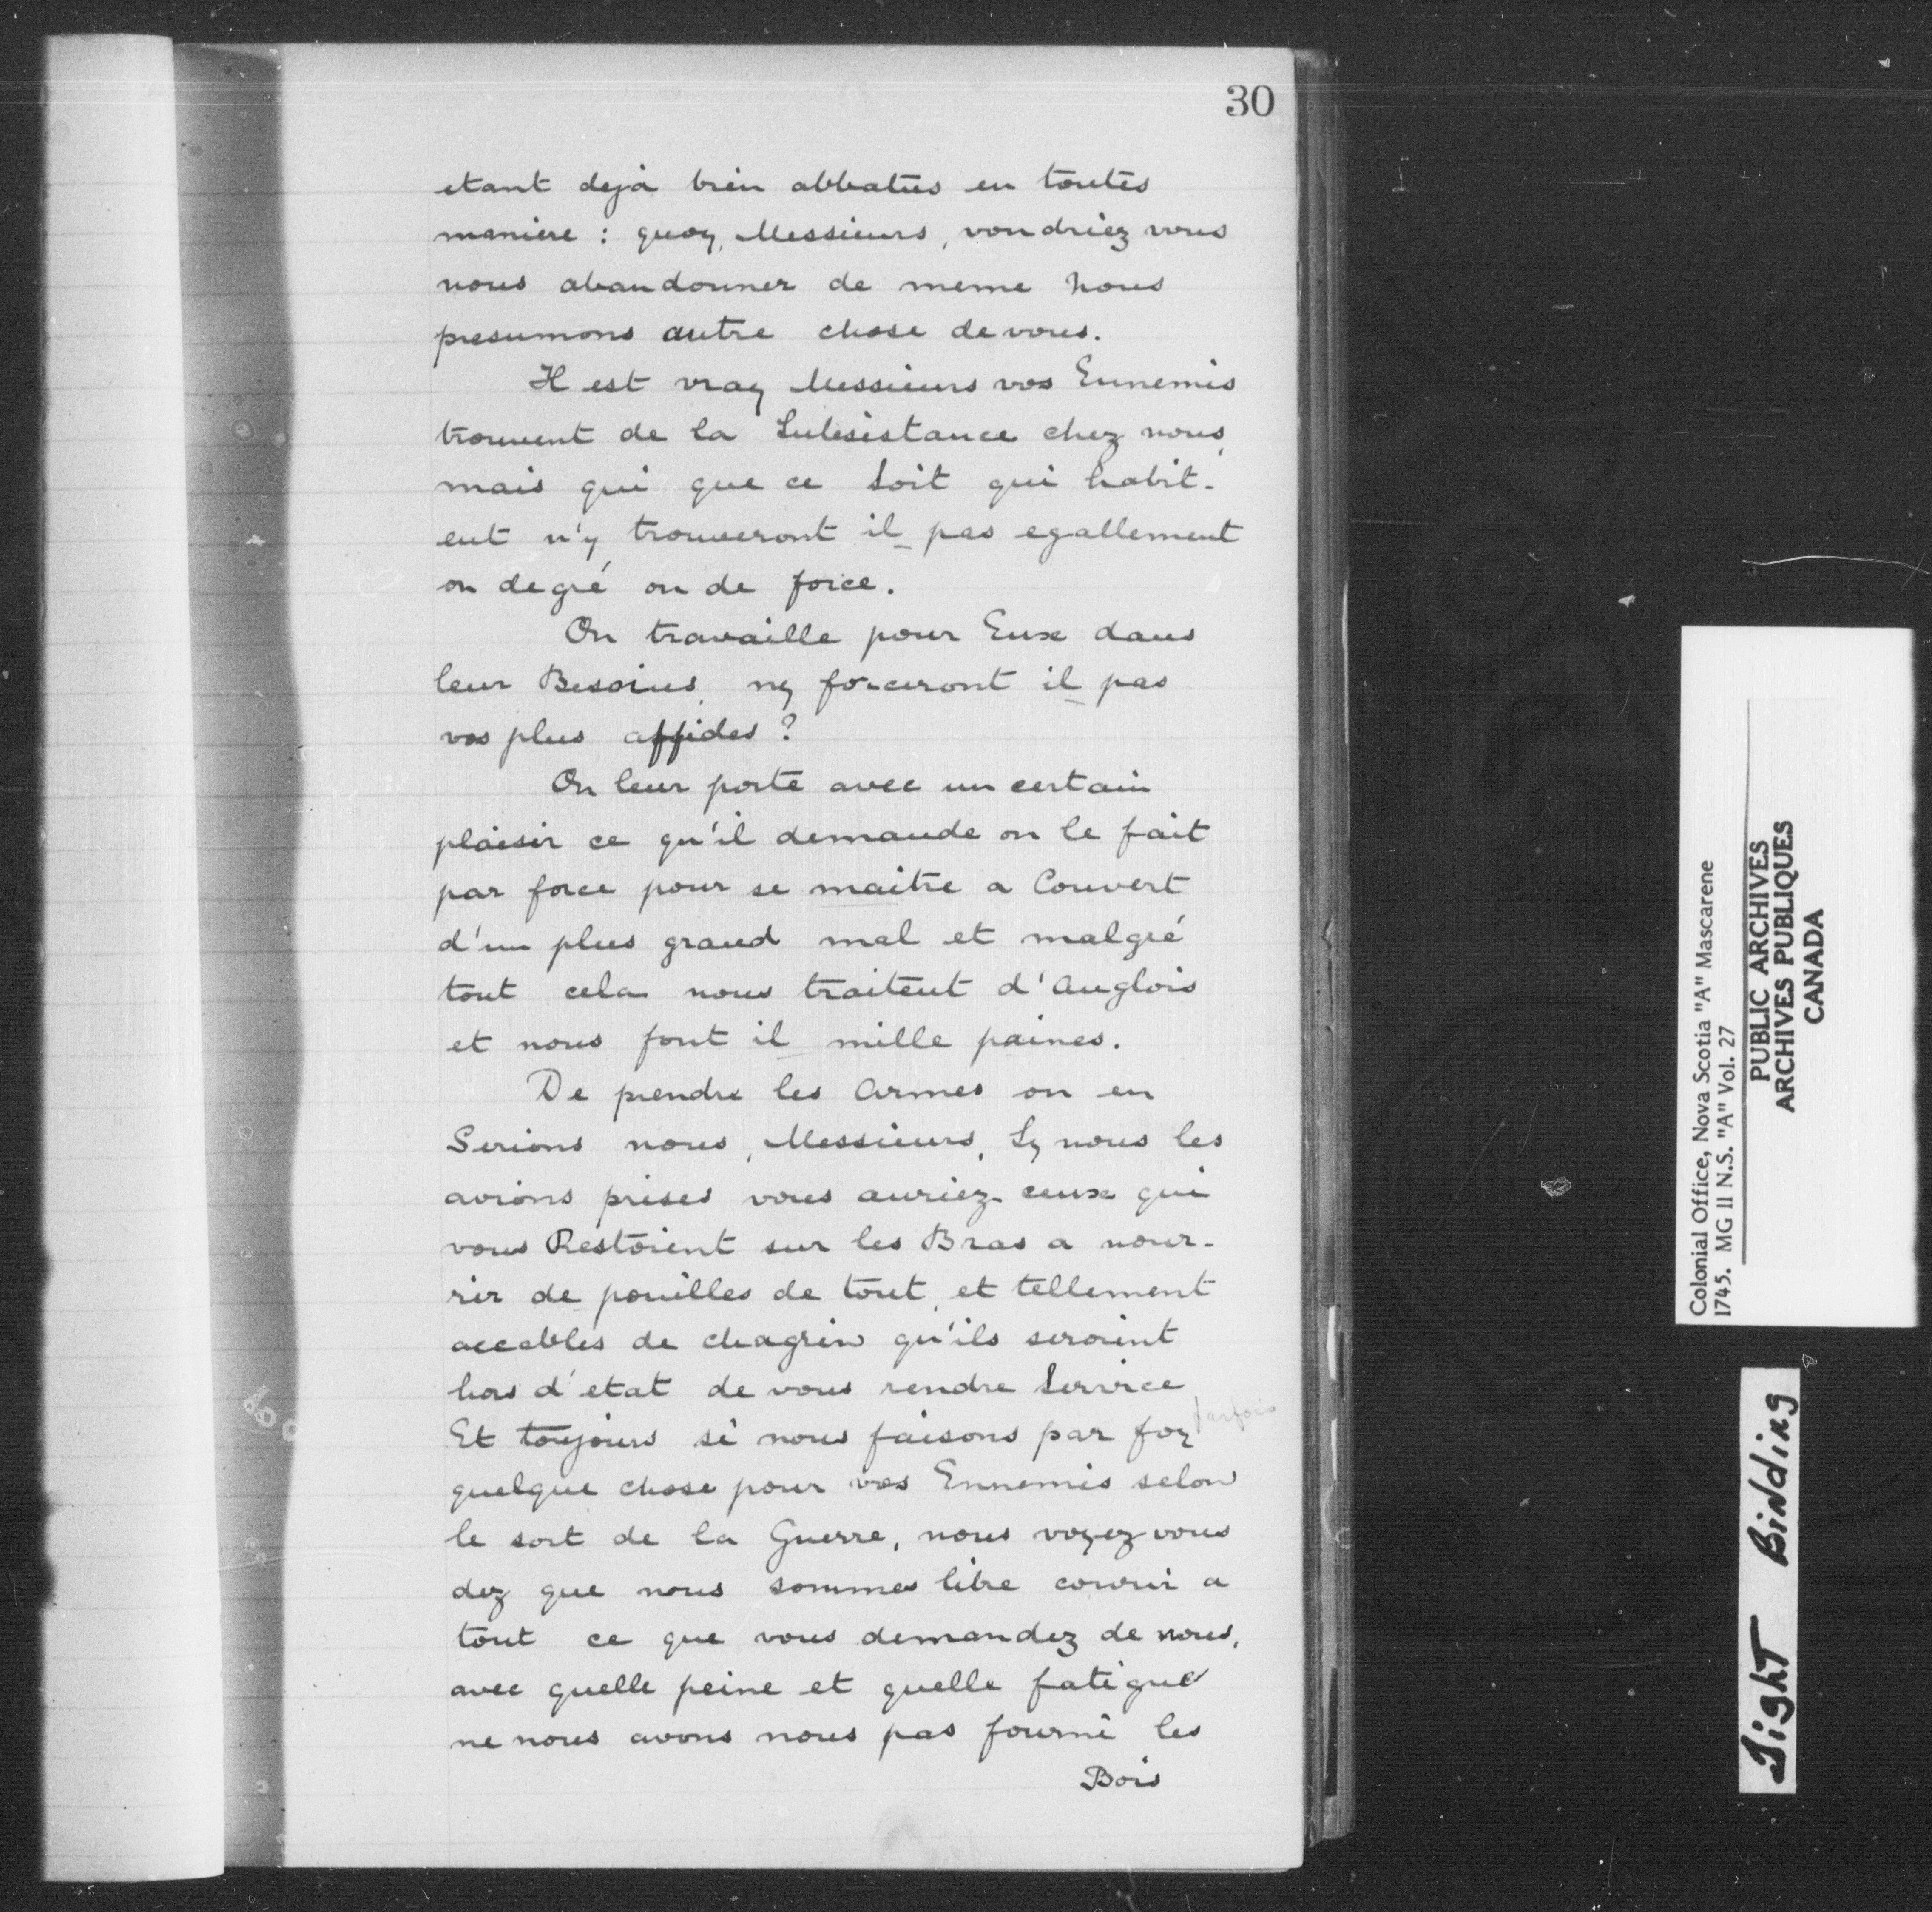 30
etant dejà bien abbatus en toutes
maniere : quoy, Messieurs, voudriez vous
nous abandonner de meme nous
presumons autre chose de vous.
Il est vray Messieurs vos Ennemis
trouvent de la Subsistance chez nous,
mais qui que ce Soit qui habit-
ent n'y trouveront il pas egallement
ou de gré ou de force.
On travaille pour Eux dans
leur Besoins, ny forceront il pas
vos plus affides ?
On leur porte avec un certain
plaisir ce qu'il demande on le fait
par force pour se maitre a Couvert
d'un plus grand mal et malgré
tout cela nous traitent d'Anglois
et nous font il mille paines.
De prendre les Armes ou en
Serions nous, Messieurs, Sy nous les
avions prises vous auriez ceux qui
vous Restoient sur les Bras a nour-
rir de pouilles de tout, et tellement
accables de chagrin qu'ils seroient
hors d'etat de vous rendre Service
Et toujours si nous faisons par foy parfois
quelque chose pour vos Ennemis selon
le sort de la Guerre, nous voyez vous
dez que nous sommes libre courir a
tout ce que vous demandez de nous,
avec quelle peine et quelle fatigue
ne nous avons nous pas fourni les
Bois
Colonial Office, Nova Scotia "A" Mascarene
1745. MG 11 N.S. "A" Vol. 27
PUBLIC ARCHIVES
ARCHIVES PUBLIQUES
CANADA
Tight Binding